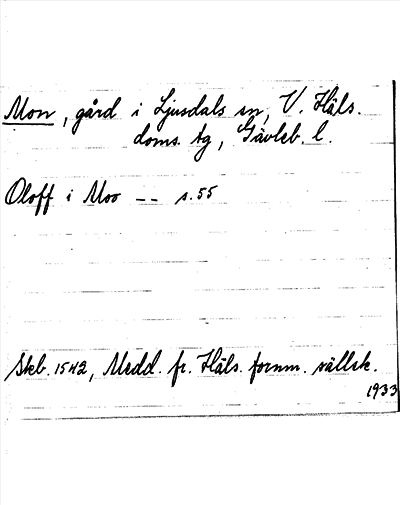 Mon, gård i Ljusdals sn, V. Häls.
doms. tg, Gävleb. l.
Oloff i Moo -- s. 55
Skb. 1542, Medd. fr. Häls. fornm. sällsk.
1933